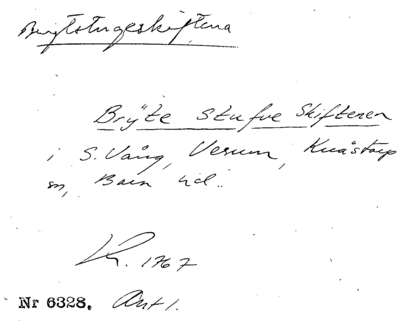 Brytstugeskiftena
Brÿte stufve Skiftenen
i S. Vång, Verum, Knästorp
sn, Bara hd.
Lk. 1767
Nr 6328. Ant 1.